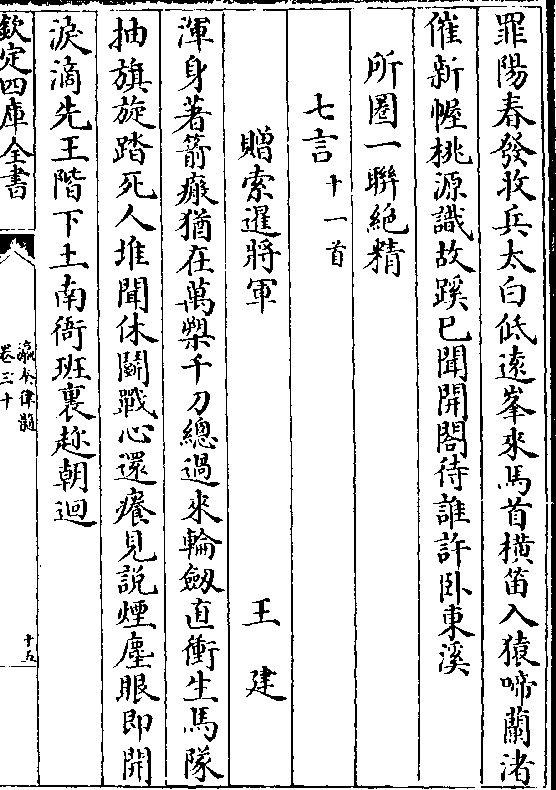 罪陽春發收兵太白低遠峯來馬首横笛入猿啼蘭渚
催新幄桃源識故蹊已聞開閣待誰許卧東溪
所圏一聯絶精
七言十一首
贈索暹將軍 王建
渾身著箭瘢猶在萬槊千刀總過來輪劒直衝生馬隊
抽旗旋踏死人堆聞休鬭戰心還癢見說煙塵眼即開
淚滴先王階下土南衙班裏趂朝迴
欽定四庫全書
瀛奎律髓
卷三十
十五